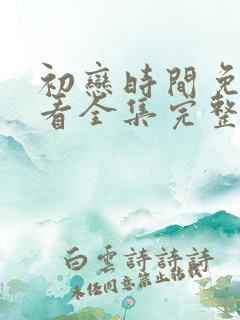 初戀時間免
看全集完整
白雲詩詩詩
未经同意禁止转载